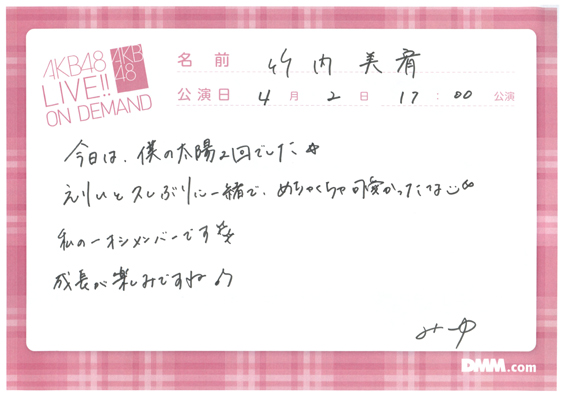 AKB48
LIVE!!
ON DEMAND
AKB
48
名前 竹内美宥
公演日 4月2日 17:00 公演
今日は、僕の太陽2回でした
えりいと久しぶりに一緒で、めちゃくちゃ可愛かったな
私の一オシメンバーです
成長が楽しみですね♪
みゆ
DMM.com